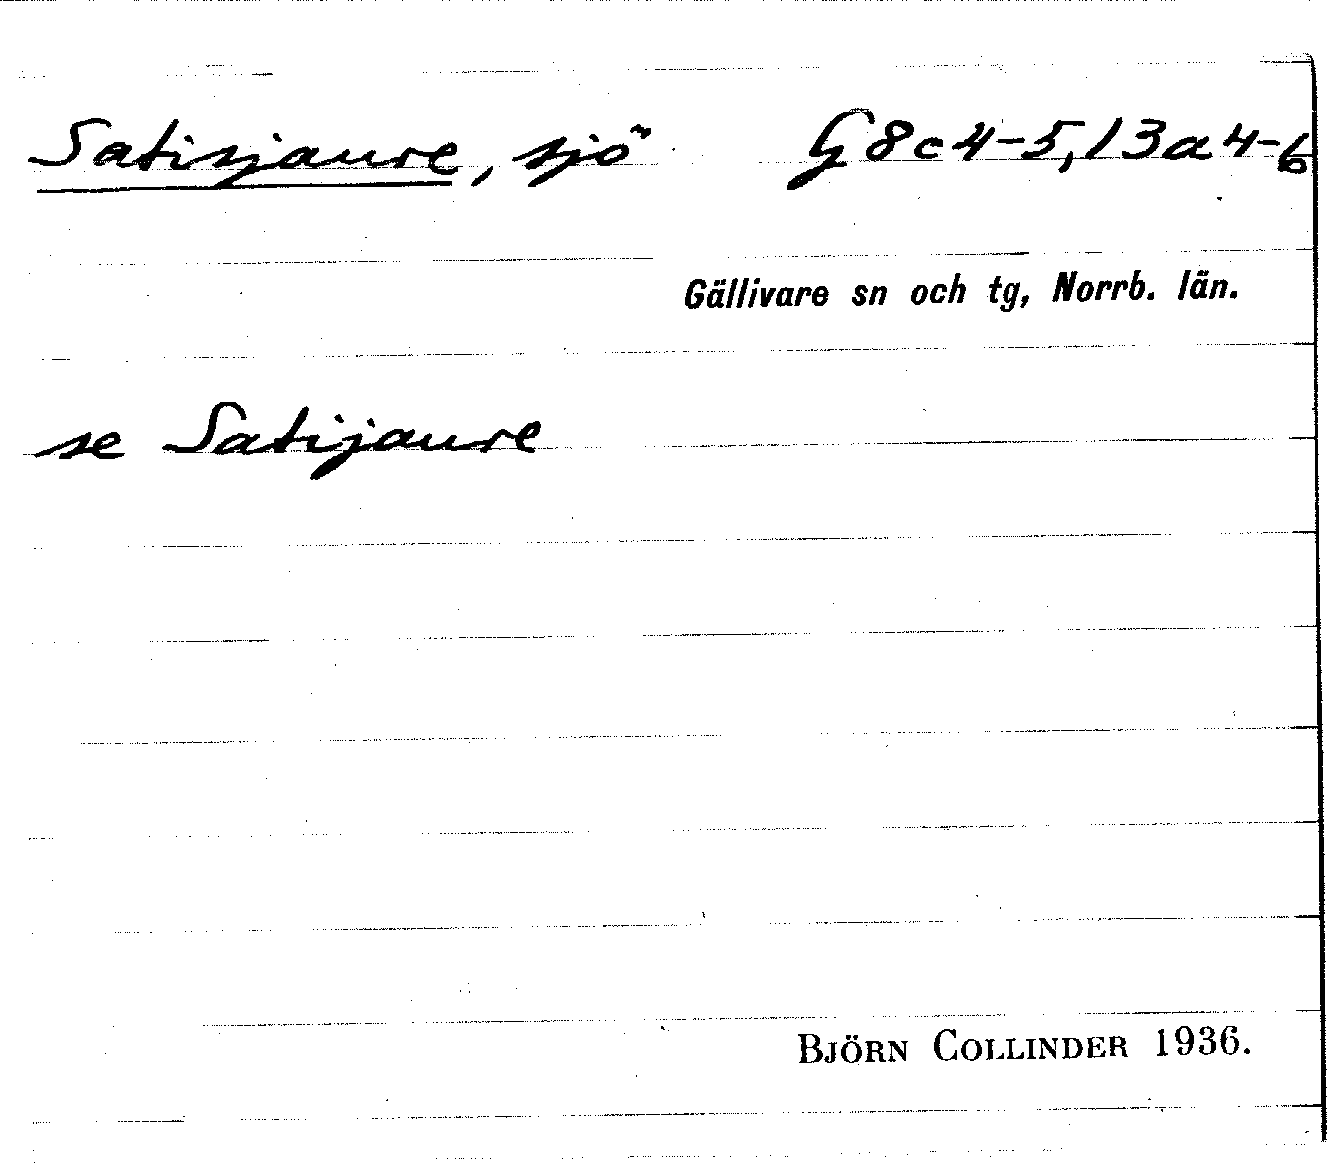 Satisjaure, sjö G8c4-5,13a4-6
Gällivare sn och tg, Norrb. län.
se Satijaure
BJÖRN COLLINDER 1936.